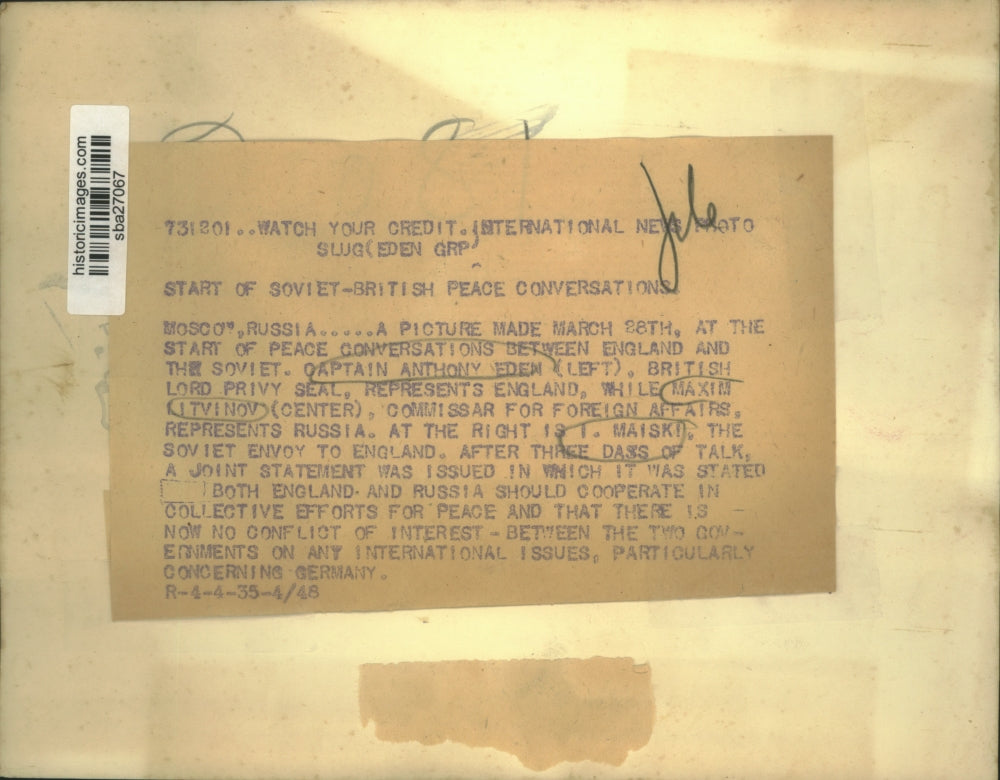 historicimages.com
sba27067
731201..WATCH YOUR CREDIT.INTERNATIONAL NEWS PHOTO
SLUG(EDEN GRP)
START OF SOVIET-BRITISH PEACE CONVERSATIONS
MOSCO",RUSSIA.....A PICTURE MADE MARCH 28TH, AT THE
START OF PEACE CONVERSATIONS BETWEEN ENGLAND AND
THE SOVIET. CAPTAIN ANTHONY EDEN (LEFT), BRITISH
LORD PRIVY SEAL, REPRESENTS ENGLAND, WHILE MAXIM
LITVINOV (CENTER), COMMISSAR FOR FOREIGN AFFAIRS,
REPRESENTS RUSSIA. AT THE RIGHT IS I. MAISKI, THE
SOVIET ENVOY TO ENGLAND. AFTER THREE DAYS OF TALK,
A JOINT STATEMENT WAS ISSUED IN WHICH IT WAS STATED
BOTH ENGLAND AND RUSSIA SHOULD COOPERATE IN
COLLECTIVE EFFORTS FOR PEACE AND THAT THERE IS
NOW NO CONFLICT OF INTEREST - BETWEEN THE TWO GOV-
ERNMENTS ON ANY INTERNATIONAL ISSUES, PARTICULARLY
CONCERNING GERMANY.
R-4-4-35-4/48